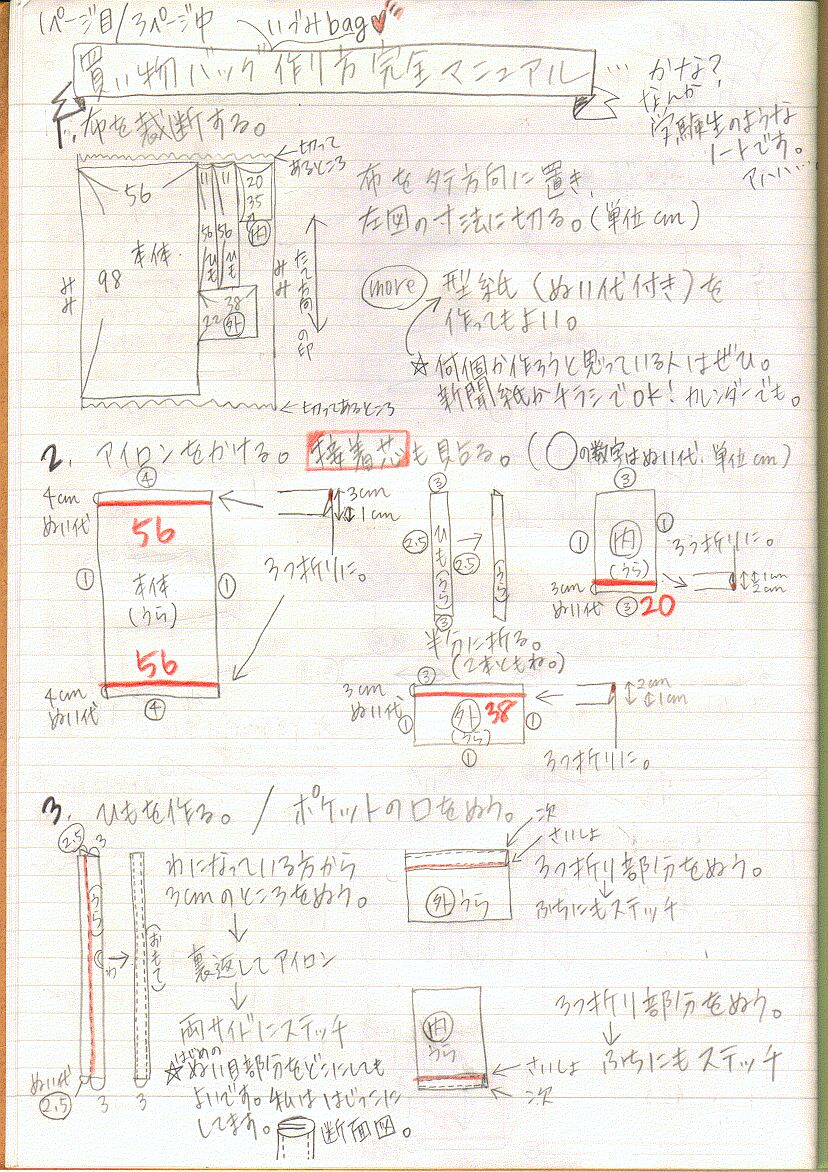 1ページ目/3ページ中
いづみbag
買い物バッグ作り方完全マニュアル … かな?
なんか
学験生のような
ノートです。
アハハ…
1. 布を裁断する。
切って
あるところ
56
11
11
20
35
内
56
ひも
56
ひも
本体
98
みみ
みみ
38
22
外
たて方向の印
切ってあるところ
布をタテ方向に置き、
左図の寸法に切る。(単位cm)
more
型紙(ぬい代付き)を
作ってもよい。
☆何個か作ろうと思っている人はぜひ。
新聞紙かチラシでOK!カレンダーでも。
2. アイロンをかける。接着芯も貼る。(○の数字はぬい代、単位cm)
④
4cm
ぬい代
56
①
本体
(うら)
①
56
4cm
ぬい代
④
3cm
1cm
3つ折りに。
③
2.5
ひも(うら)
2.5
③
(うら)
半分に折る。
(2本ともね。)
③
①
内
(うら)
①
3cm
ぬい代
③
20
3つ折りに。
1cm
2cm
3cm
ぬい代
③
①
外
(うら)
38
①
①
2cm
1cm
3つ折りに。
3. ひもを作る。/ポケットの口をぬう。
2.5
3
(うら)
わ
(おもて)
ぬい代
2.5
3
3
わになっている方から
3cmのところをぬう。
↓
裏返してアイロン
↓
両サイドにステッチ
はじめの
☆ぬい目部分をどこにしても
よいです。私ははじっこに
してます。
断面図。
次
さいしょ
外 うら
3つ折り部分をぬう。
↓
ふちにもステッチ
内
うら
さいしょ
次
3つ折り部分をぬう。
↓
ふちにもステッチ